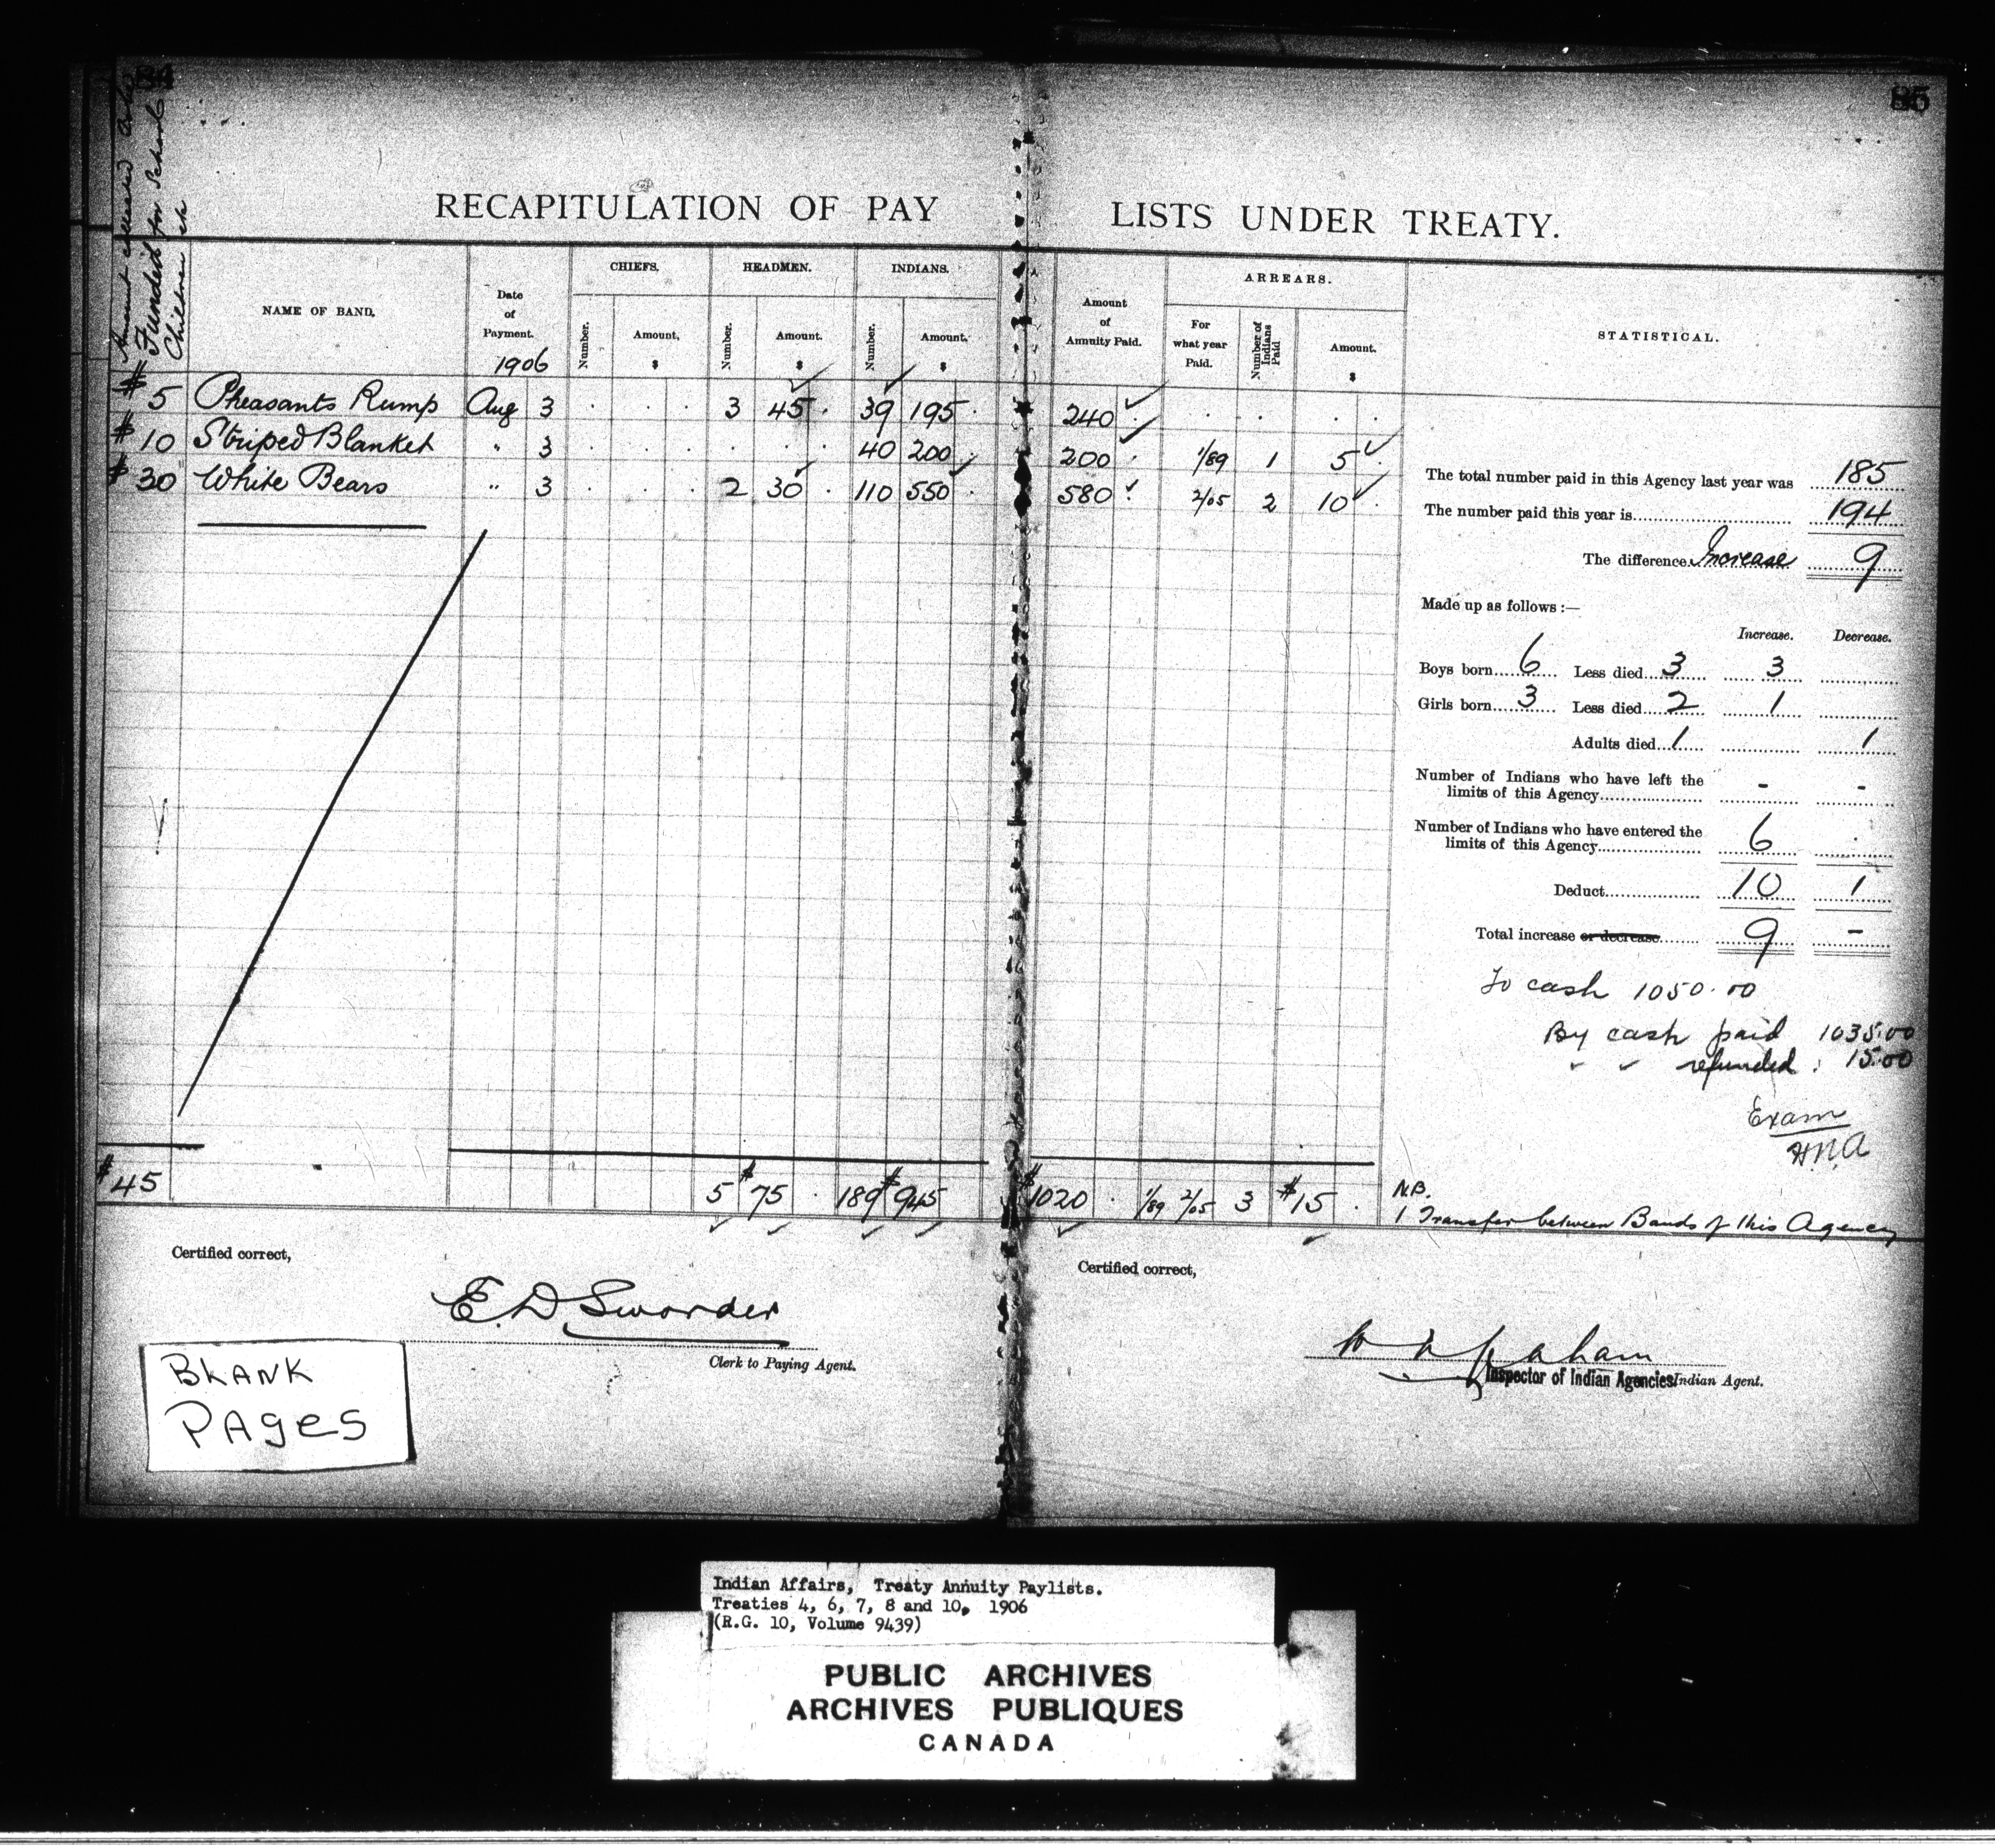 84
85
Funded for School
Children
RECAPITULATION OF PAY LISTS UNDER TREATY.
NAME OF BAND.
Date of Payment. 1906
CHIEFS. Number. Amount, $
HEADMEN. Number. Amount. $
INDIANS. Number. Amount. $
Amount of Annuity Paid.
ARREARS. For what year Paid. Number of Indians Paid Amount. $
STATISTICAL.
$ 5 Pheasants Rump Aug 3 3 45 39 195 240
$ 10 Striped Blanket " 3 40 200 200 1/89 1 5
$ 30 White Bears " 3 2 30 110 550 580 2/05 2 10
The total number paid in this Agency last year was 185
The number paid this year is 194
The difference Increase 9
Made up as follows :—
Increase. Decrease.
Boys born 6 Less died 3 3
Girls born 3 Less died 2 1
Adults died 1 1
Number of Indians who have left the
limits of this Agency - -
Number of Indians who have entered the
limits of this Agency 6
Deduct 10 1
Total increase or decrease 9 -
To cash 1050.00
By cash paid 1035.00
" " refunded 15.00
Exam
H.N.A
$45 5 $75 189 $945 $1020 1/89 2/05 3 $15
N.B.
1 Transfer between Bands of this Agency
Certified correct,
E. D. Sworder
Clerk to Paying Agent.
Certified correct,
W M Graham
Inspector of Indian Agencies Indian Agent.
BLANK
PAGES
Indian Affairs, Treaty Annuity Paylists.
Treaties 4, 6, 7, 8 and 10, 1906
(R.G. 10, Volume 9439)
PUBLIC ARCHIVES
ARCHIVES PUBLIQUES
CANADA